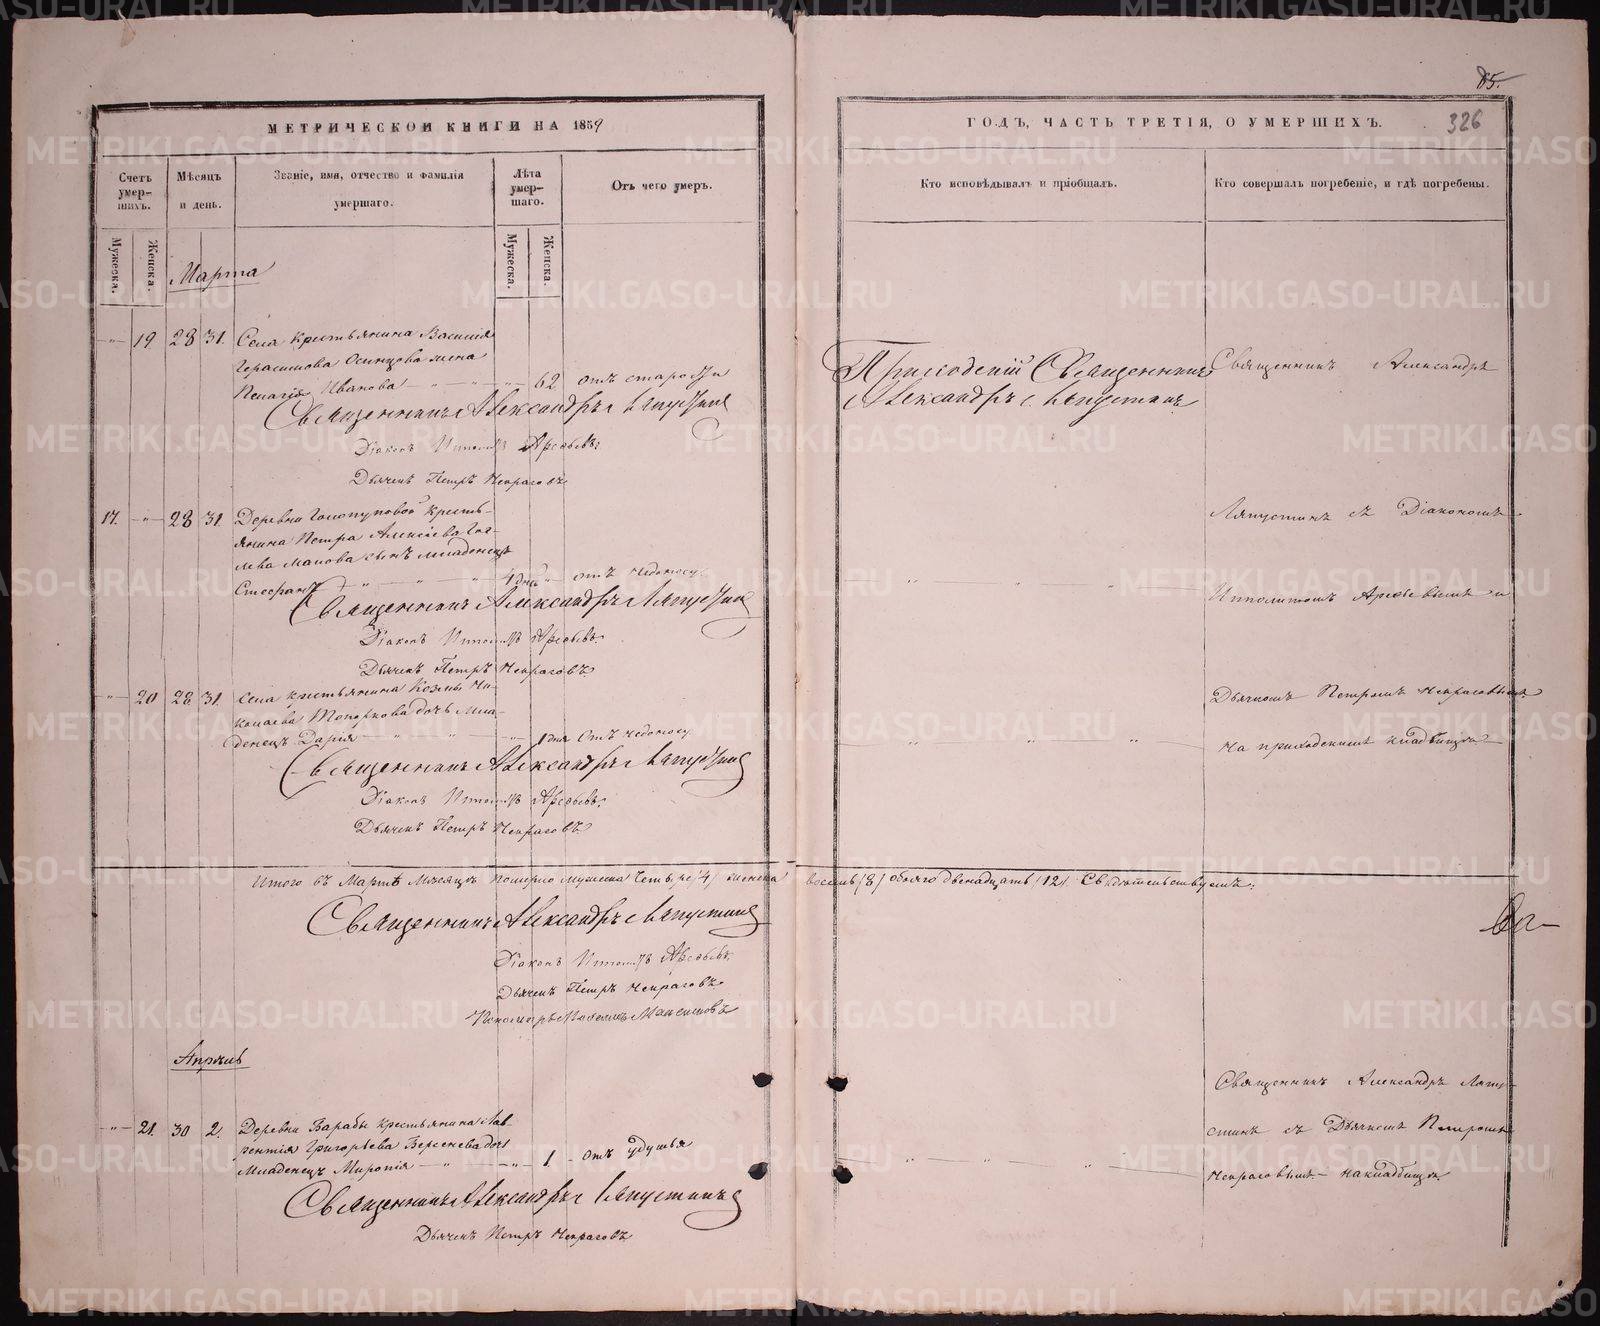 85.
326
МЕТРИЧЕСКОЙ КНИГИ НА 1859
ГОДЪ, ЧАСТЬ ТРЕТІЯ, О УМЕРШИХЪ.
Счетъ умер-шихъ.
Мѣсяцъ и день.
Званіе, имя, отчество и фамилія умершаго.
Лѣта умер-шаго.
Отъ чего умеръ.
Кто исповѣдывалъ и пріобщалъ.
Кто совершалъ погребеніе, и гдѣ погребены.
Мужеска.
Женска.
Мужеска.
Женска.
Марта
19. 28 31. Села крестьянина Василія
Герасимова Осинцова жена
Пелагія Иванова 62 отъ старости
Священникъ Александръ Ляпустинъ
Діаконъ Ипполитъ Арефьевъ.
Дьячекъ Петръ Некрасовъ
Приходскій Священникъ
Александръ Ляпустинъ
Священникъ Александръ
17. 28 31. Деревни Голопуповой кресть-
янина Петра Алексіева
сынъ младенецъ
Стефанъ 4 дней отъ недоносу.
Священникъ Александръ Ляпустинъ
Діаконъ Ипполитъ Арефьевъ.
Дьячекъ Петръ Некрасовъ
Ляпустинъ съ Діакономъ
Ипполитомъ Арефьевымъ и
20 28 31. Села крестьянина Козмы Ни-
колаева Топоркова дочь мла-
денецъ Дарія 1 дня отъ недоносу
Священникъ Александръ Ляпустинъ
Діаконъ Ипполитъ Арефьевъ.
Дьячекъ Петръ Некрасовъ.
Дьячкомъ Петромъ Некрасовымъ
на приходскомъ кладбищѣ
Итого въ Мартѣ мѣсяцѣ померло мужеска четыре /4/ женска восемь /8/ обоего двенадцать /12/ Свидѣтельствуемъ:
Священникъ Александръ Ляпустинъ
Діаконъ Ипполитъ Арефьевъ.
Дьячекъ Петръ Некрасовъ
Пономарь Максимовъ
Апрѣль
21. 30 2. Деревни Барабы крестьянина Лав-
рентія Григорьева Берсенева дочь
Младенецъ Миропія 1 отъ удушья
Священникъ Александръ Ляпустинъ
Дьячекъ Петръ Некрасовъ
Священникъ Александръ Ляпу-
стинъ съ Дьячкомъ Петромъ
Некрасовымъ на кладбищѣ
METRIKI.GASO-URAL.RU